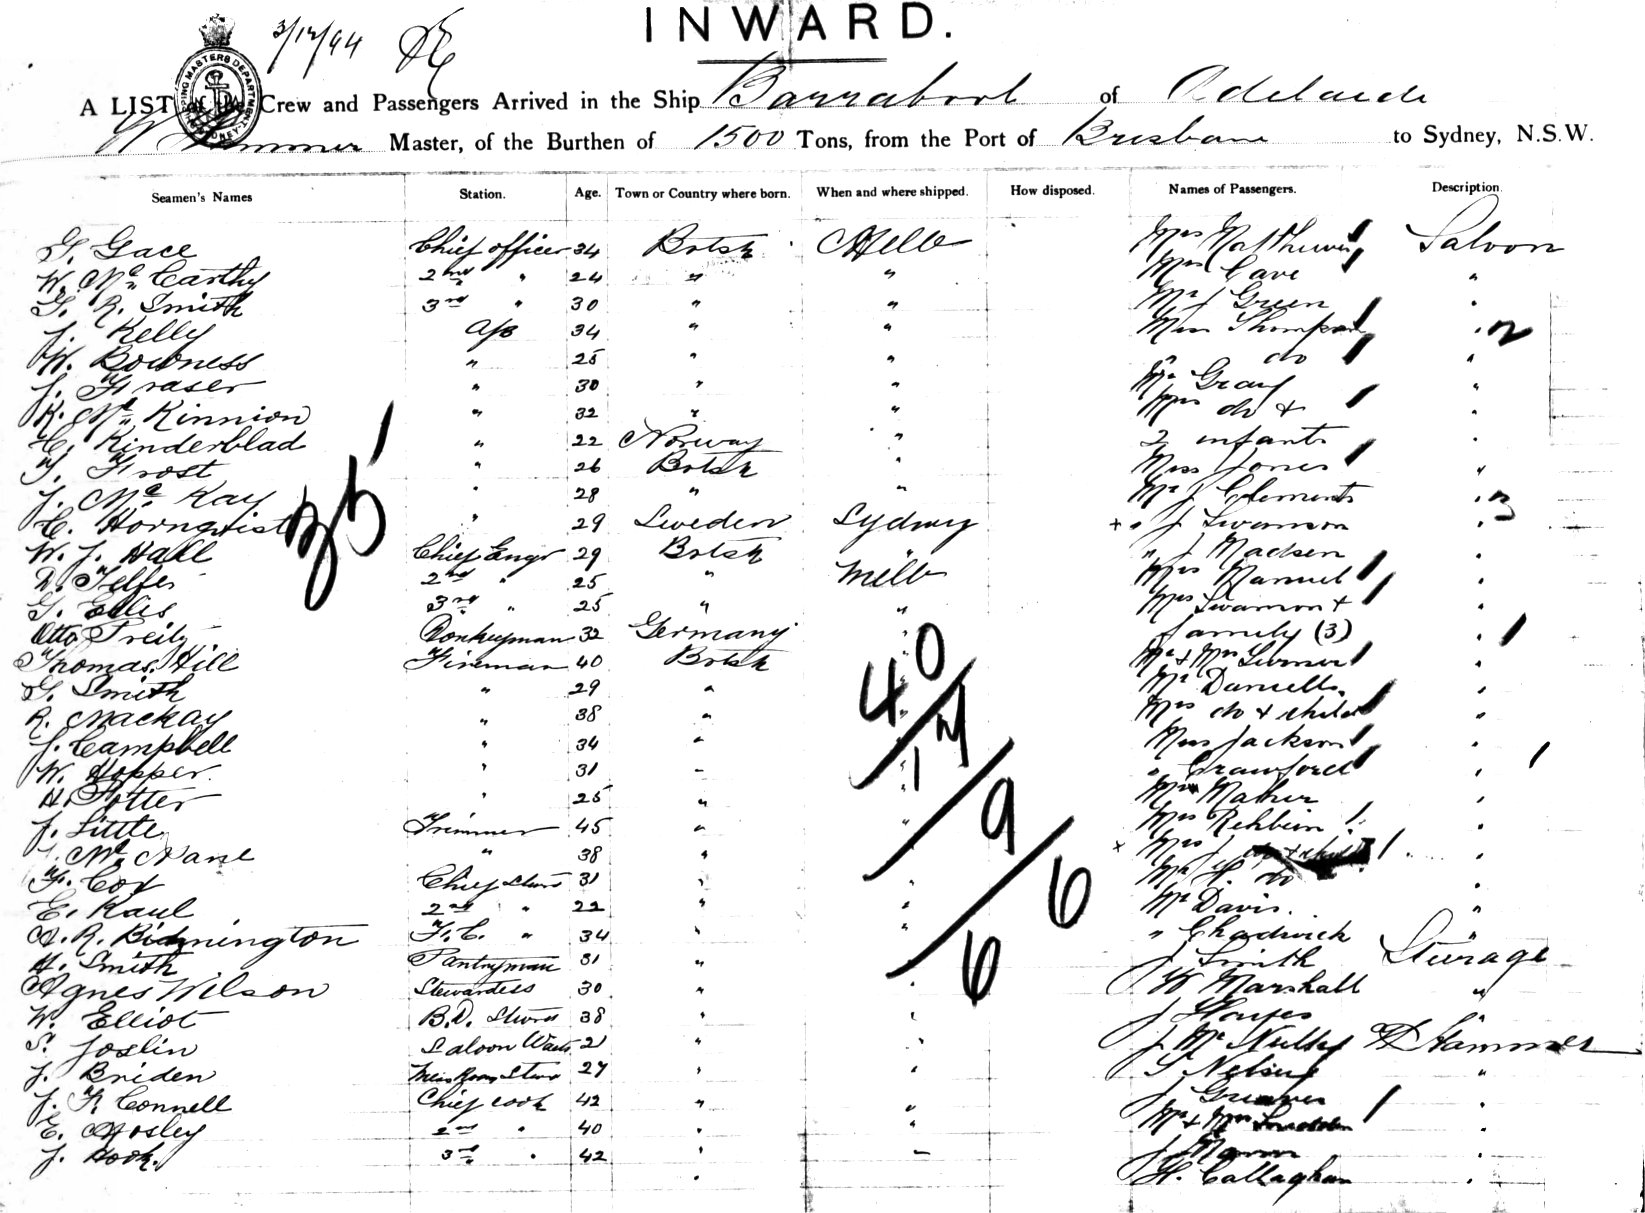 INWARD.
3/12/94
A LIST of the Crew and Passengers Arrived in the Ship Barrabool of Adelaide
W Hammer Master, of the Burthen of 1500 Tons, from the Port of Brisbane to Sydney, N.S.W.
Seamen's Names Station. Age. Town or Country where born. When and where shipped. How disposed. Names of Passengers. Description.
G. Gace Chief officer 34 Brtsh Melb Mrs Matthews Saloon
W. McCarthy 2nd " 24 " " Mrs Cave "
G. R. Smith 3rd " 30 " " Mr J Green "
J. Kelly A/B 34 " " Miss Thompson " 2
W. Bowness " 25 " " " do "
J. Fraser " 30 " " Mr Gray "
K. McKinnion " 32 " " Mrs do + "
C. Kinderblad " 22 Norway " 2 infants
T. Frost " 26 Brtsh " Miss Jones "
J. McKay " 28 " " Mr J Clements " 3
C. Hornqvist " 29 Sweden Sydney + " J Swanson "
W. J. Hall Chief Engr 29 Brtsh " J Madsen "
D. Telfer 2nd " 25 " Melb Mrs Manuel "
G. Ellis 3rd " 25 " " Mrs Swanson +
Otto Donkeyman 32 Germany " family (3) " 1
Thomas Hill Fireman 40 Brtsh " Mr + Mrs "
G. Smith " 29 " " Mr Daniells "
R. Mackay " 38 " " Mrs do + child "
J. Campbell " 34 " " Miss Jackson "
W. Hopper " 31 " " " Crawford " 1
H. Potter " 25 " " Mr Maher "
J. Little Trimmer 45 " " Mrs Rehbein "
McNane " 38 " " + Mrs J do + child "
F. Cox Chief Stwd 31 " " Mr H. do "
E. Kaul 2nd " 22 " " Mr Davis "
A. R. Bidnington F.C. " 34 " " " Chadwick "
H. Smith Pantryman 31 " " J Smith Steerage
Agnes Wilson Stewardess 30 " " W Marshall "
W. Elliot B.D. Stwd 38 " " J Hayes "
S. Joslin Saloon Waitr 21 " " J McNulty W Hammer
J. Briden Messroom Stwd 27 " " T "
J. F. Connell Chief cook 42 " " J "
E. Mosley 2nd " 40 " " Mr + Mrs "
J. Hook. 3rd " 42 " " J "
H. Callaghan "
35
40
17
9
6
6